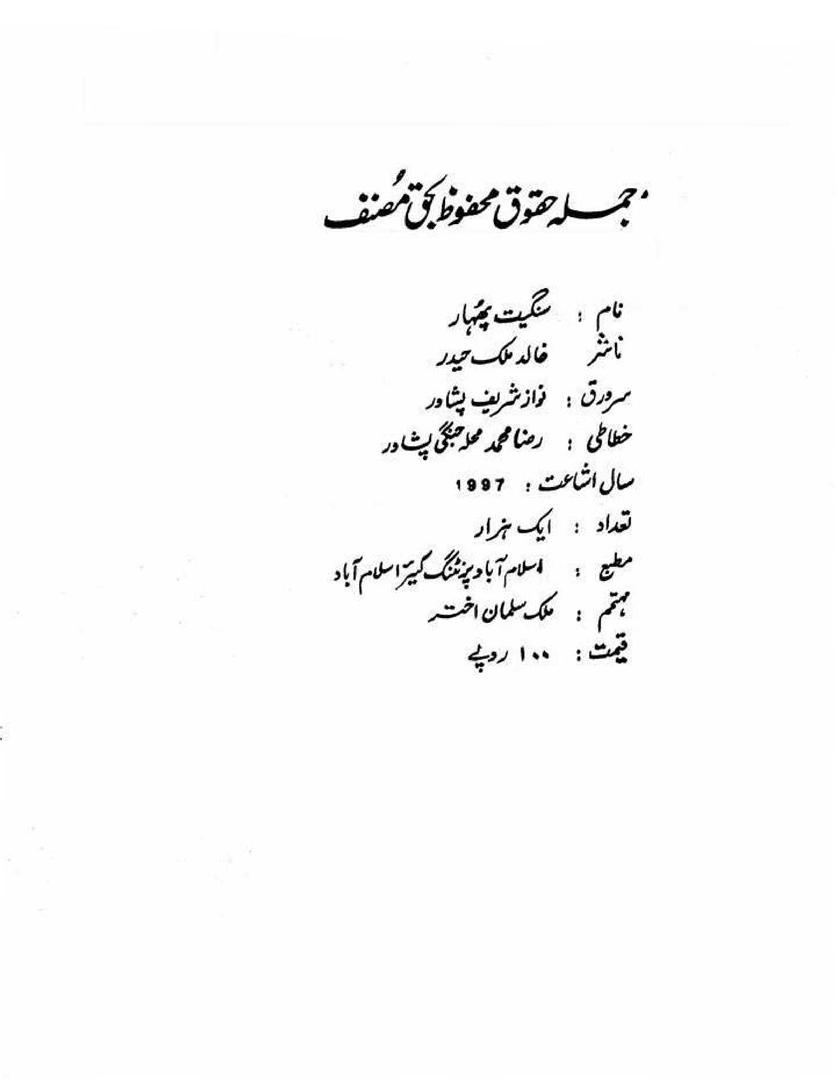 جملہ حقوق محفوظ بحق مُصنف
نام : سنگیت پھُہار
ناشر خالد ملک حیدر
سرورق : نواز شریف پشاور
خطاطی : رضا محمد محلہ جنگی پشاور
سال اشاعت : 1997
تعداد : ایک ہزار
مطبع : اسلام آباد پرنٹنگ کیئر اسلام آباد
مہتمم : ملک سلمان اختر
قیمت : ۱۰۰ روپے